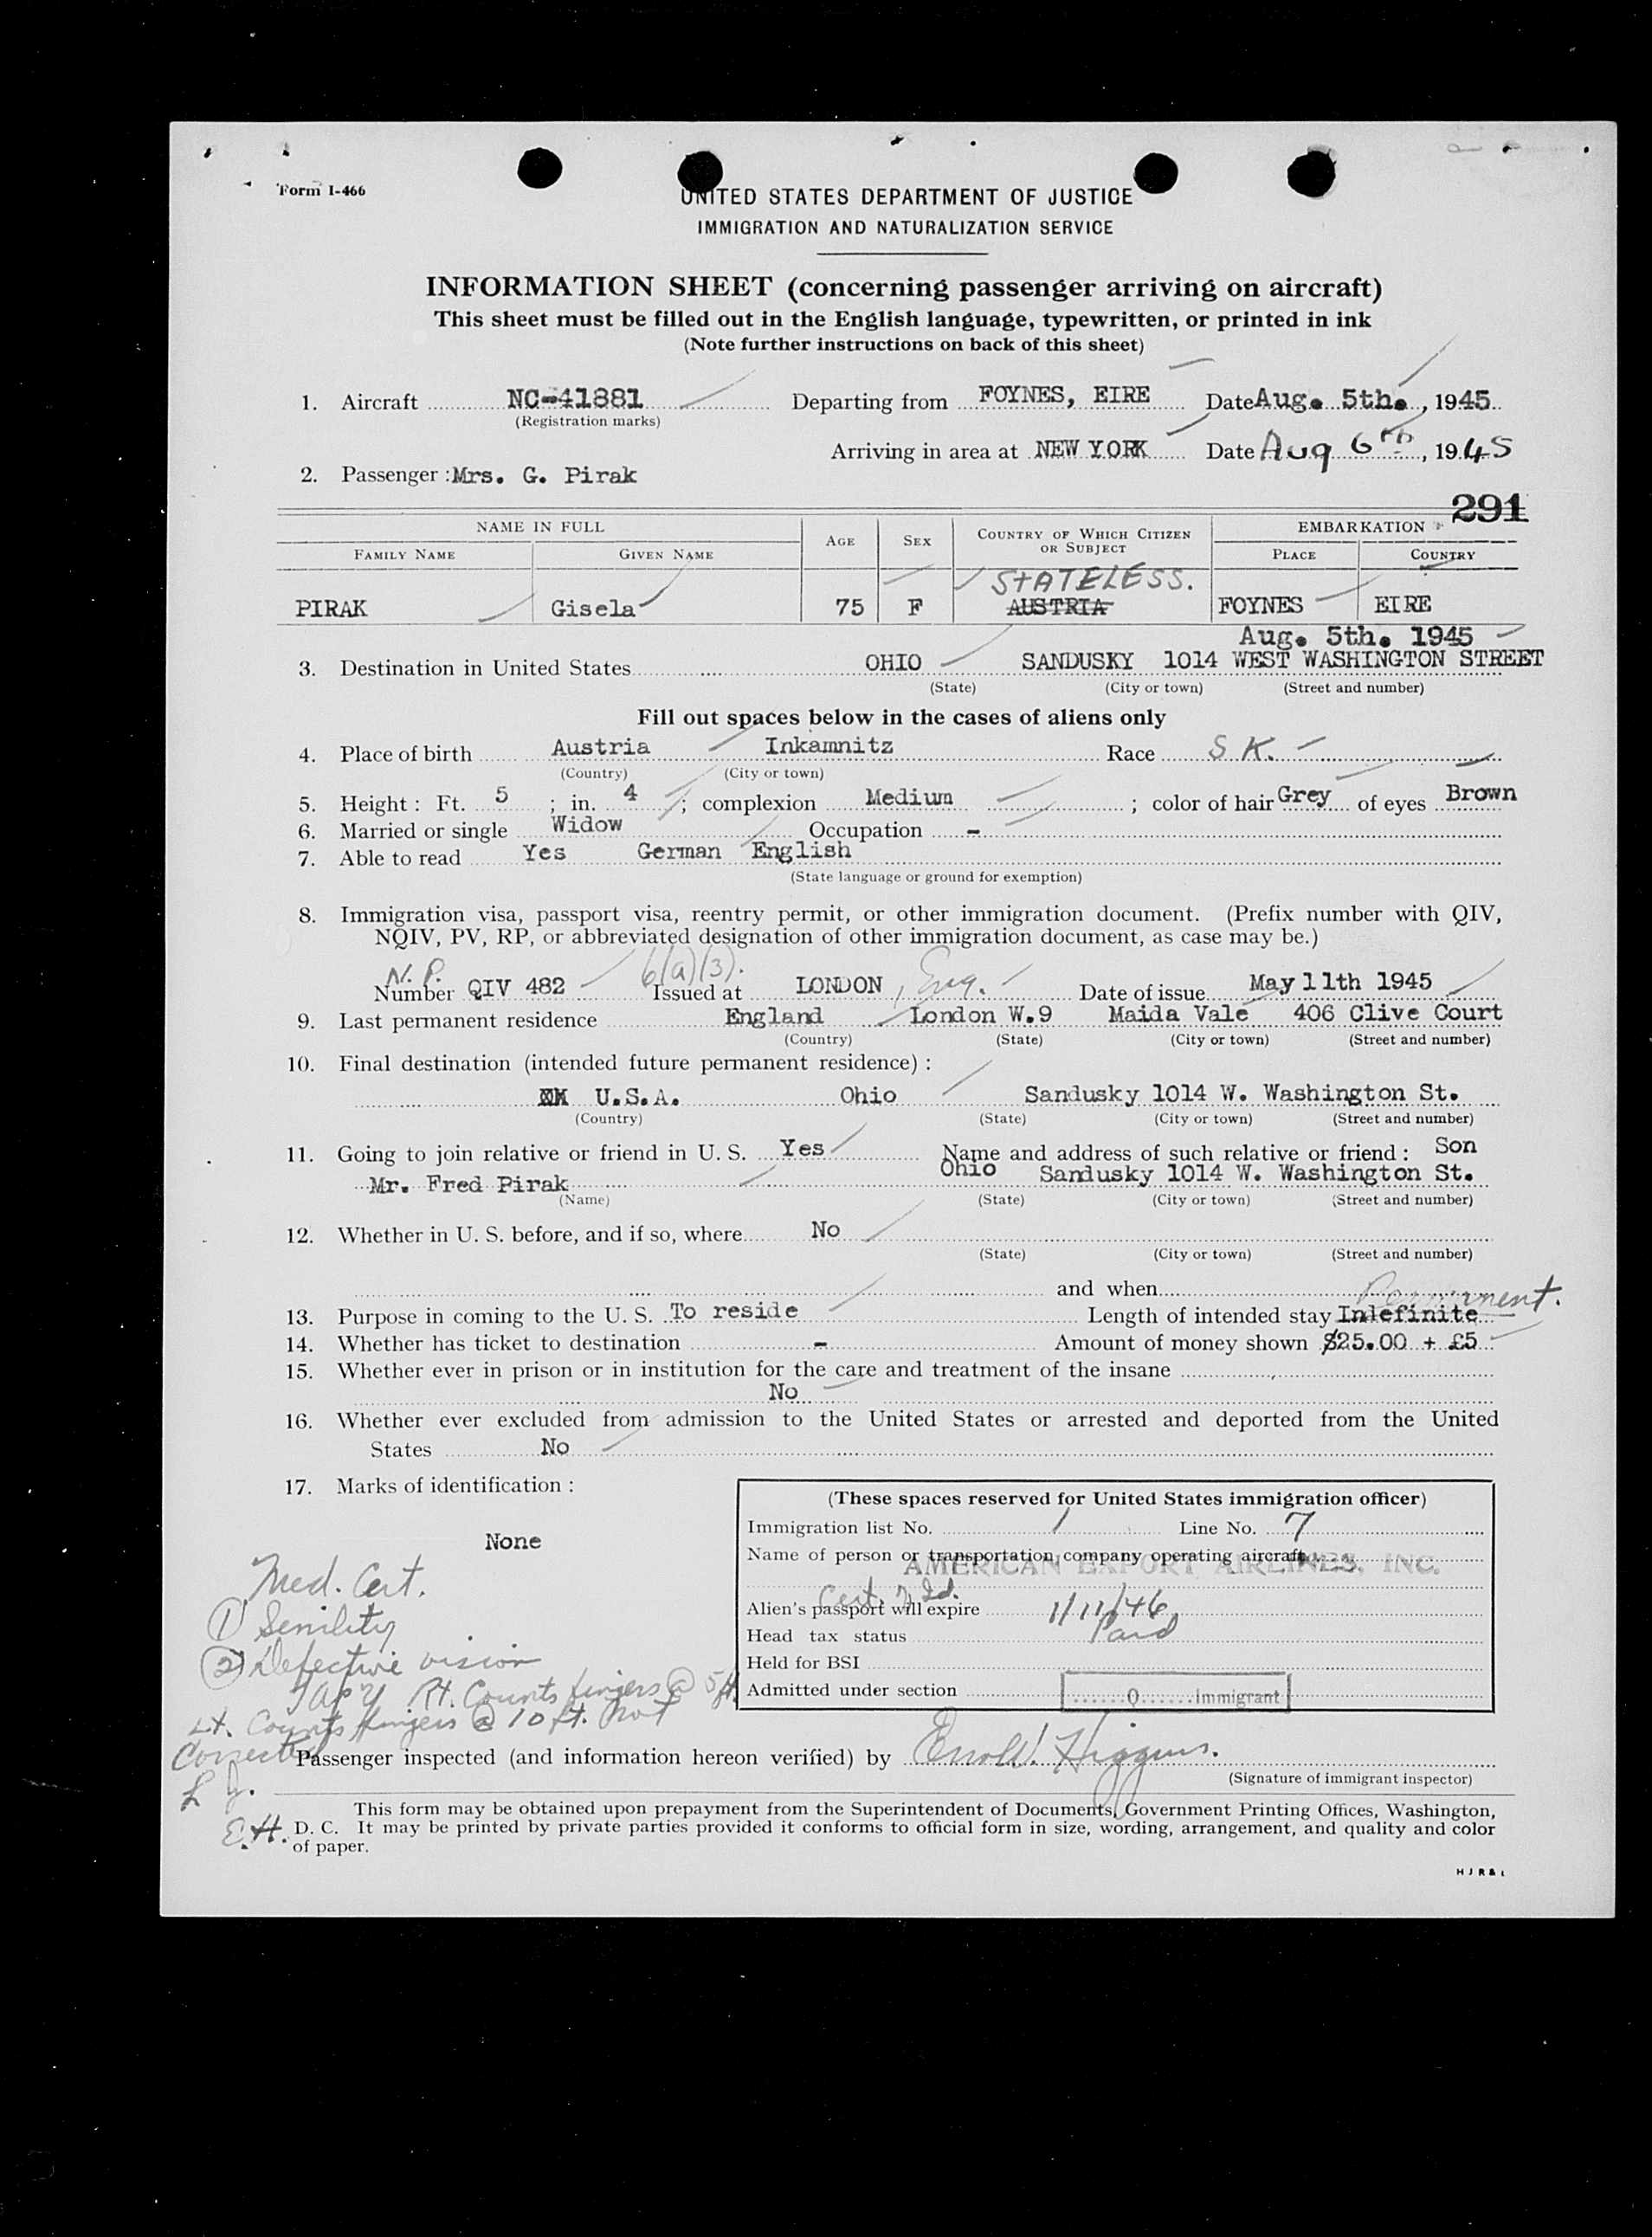 Form I-466
UNITED STATES DEPARTMENT OF JUSTICE
IMMIGRATION AND NATURALIZATION SERVICE
INFORMATION SHEET (concerning passenger arriving on aircraft)
This sheet must be filled out in the English language, typewritten, or printed in ink
(Note further instructions on back of this sheet)
1. Aircraft NC-41881 Departing from FOYNES, EIRE Date Aug. 5th., 1945
(Registration marks)
Arriving in area at NEW YORK Date Aug 6th, 1945
2. Passenger : Mrs. G. Pirak
291
NAME IN FULL AGE SEX COUNTRY OF WHICH CITIZEN OR SUBJECT EMBARKATION
FAMILY NAME GIVEN NAME PLACE COUNTRY
STATELESS.
PIRAK Gisela 75 F AUSTRIA FOYNES EIRE
Aug. 5th. 1945
3. Destination in United States OHIO SANDUSKY 1014 WEST WASHINGTON STREET
(State) (City or town) (Street and number)
Fill out spaces below in the cases of aliens only
4. Place of birth Austria Inkamnitz Race S K.
(Country) (City or town)
5. Height : Ft. 5 ; in. 4 ; complexion Medium ; color of hair Grey of eyes Brown
6. Married or single Widow Occupation -
7. Able to read Yes German English
(State language or ground for exemption)
8. Immigration visa, passport visa, reentry permit, or other immigration document. (Prefix number with QIV,
NQIV, PV, RP, or abbreviated designation of other immigration document, as case may be.)
N. P. 6(a)(3).
Number QIV 482 Issued at LONDON, Eng. Date of issue May 11th 1945
9. Last permanent residence England London W.9 Maida Vale 406 Clive Court
(Country) (State) (City or town) (Street and number)
10. Final destination (intended future permanent residence) :
U.S.A. Ohio Sandusky 1014 W. Washington St.
(Country) (State) (City or town) (Street and number)
11. Going to join relative or friend in U. S. Yes Name and address of such relative or friend : Son
Mr. Fred Pirak Ohio Sandusky 1014 W. Washington St.
(Name) (State) (City or town) (Street and number)
12. Whether in U. S. before, and if so, where No
(State) (City or town) (Street and number)
and when
Permanent.
13. Purpose in coming to the U. S. To reside Length of intended stay Inlefinite
14. Whether has ticket to destination - Amount of money shown $25.00 + £5
15. Whether ever in prison or in institution for the care and treatment of the insane
No
16. Whether ever excluded from admission to the United States or arrested and deported from the United
States No
17. Marks of identification :
None
(These spaces reserved for United States immigration officer)
Immigration list No. 1 Line No. 7
Name of person or transportation company operating aircraft
AMERICAN EXPORT AIRLINES, INC.
Cert. of Id.
Alien's passport will expire 1/11/46
Head tax status Paid
Held for BSI
Admitted under section Q Immigrant
Med. Cert.
① Senility
② Defective vision
Rt. Counts fingers @ 5 ft.
Lt. Counts fingers @ 10 ft. not
Corrected
Passenger inspected (and information hereon verified) by Errol W. Higgins.
(Signature of immigrant inspector)
E.H.
This form may be obtained upon prepayment from the Superintendent of Documents, Government Printing Offices, Washington,
D. C. It may be printed by private parties provided it conforms to official form in size, wording, arrangement, and quality and color
of paper.
H J R & L